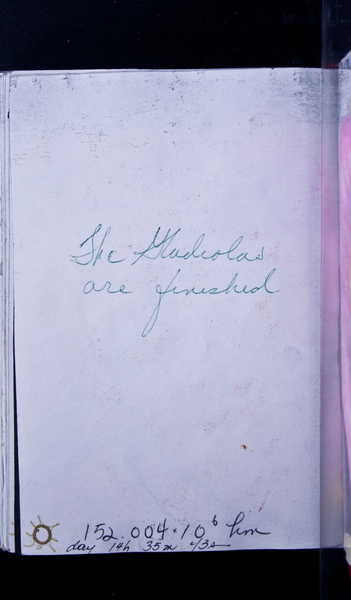 The Gladiolas
are finished
152.004·10⁶ km
day 14h 35m 43s